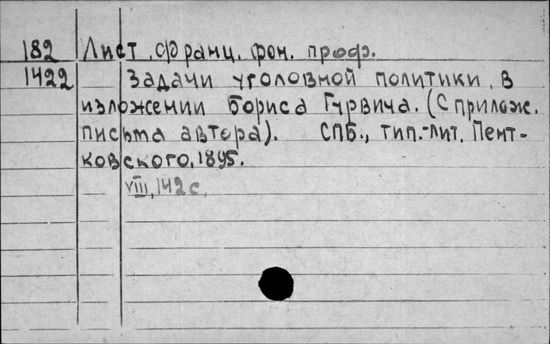 182 Лист, Франц, фон, проф.
1422 Задачи уголовной политики, в
изложении Бориса Гурвича. (С прилож.
письма автора). СПБ., тип.-лит. Пент-
ковского, 1895.
VIII, 142 с.